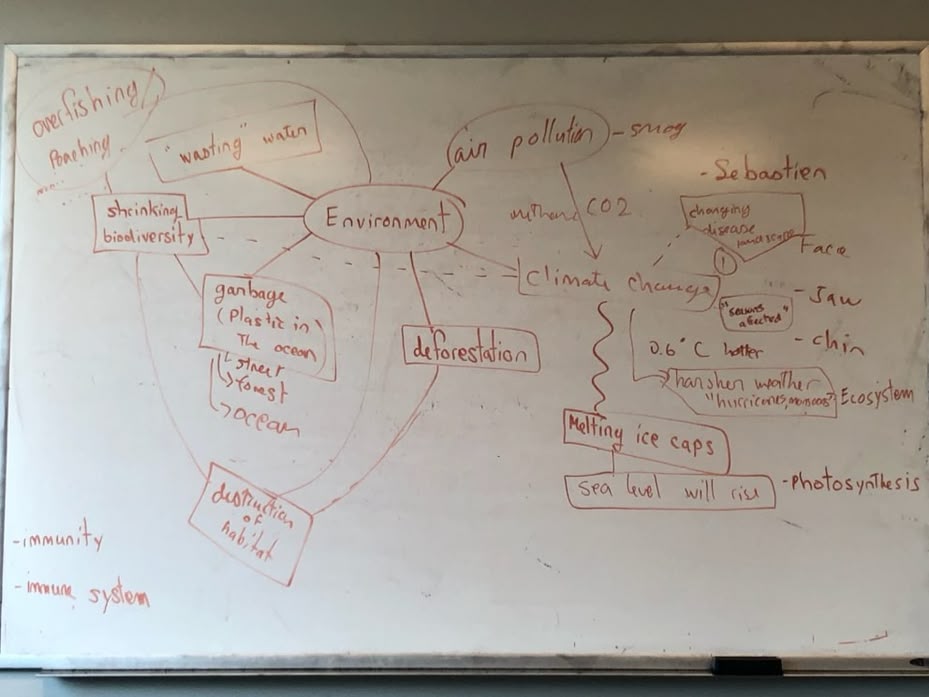 overfishing
Poaching
"wasting" water
air pollution
- smog
- Sebastien
shrinking
biodiversity
Environment
methane CO2
changing
disease
landscape
Face
1
Climate change
garbage
(Plastic in)
The ocean
↳ street
↳ forest
↳ ocean
deforestation
"seasons
affected"
- Jaw
- chin
0.6°C hotter
harsher weather
"hurricones, monsoons"
Ecosystem
Melting ice caps
sea level will rise
- Photosynthesis
distruction
of
habitat
- immunity
- immune system